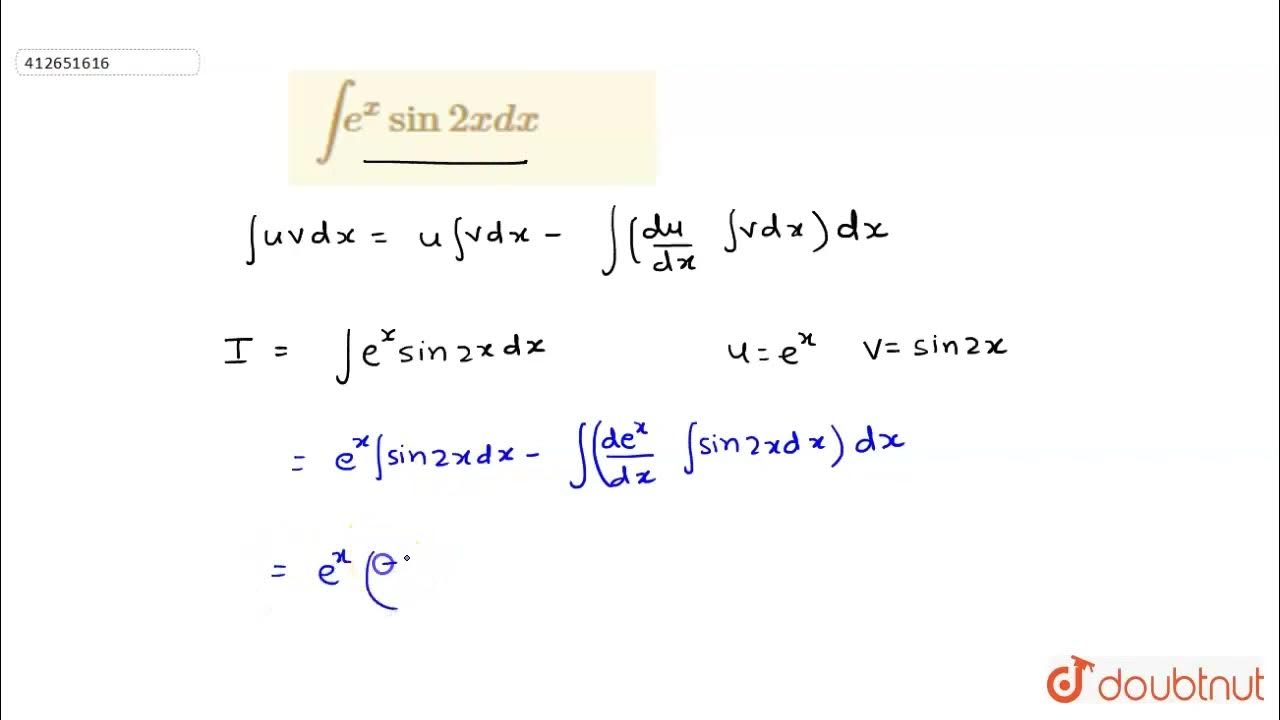 412651616
∫e^x sin 2xdx
∫uvdx = u∫vdx - ∫(du/dx ∫vdx) dx
I = ∫e^x sin2x dx u=e^x v= sin2x
= e^x∫sin2xdx - ∫(de^x/dx ∫sin2xdx) dx
= e^x (-
doubtnut